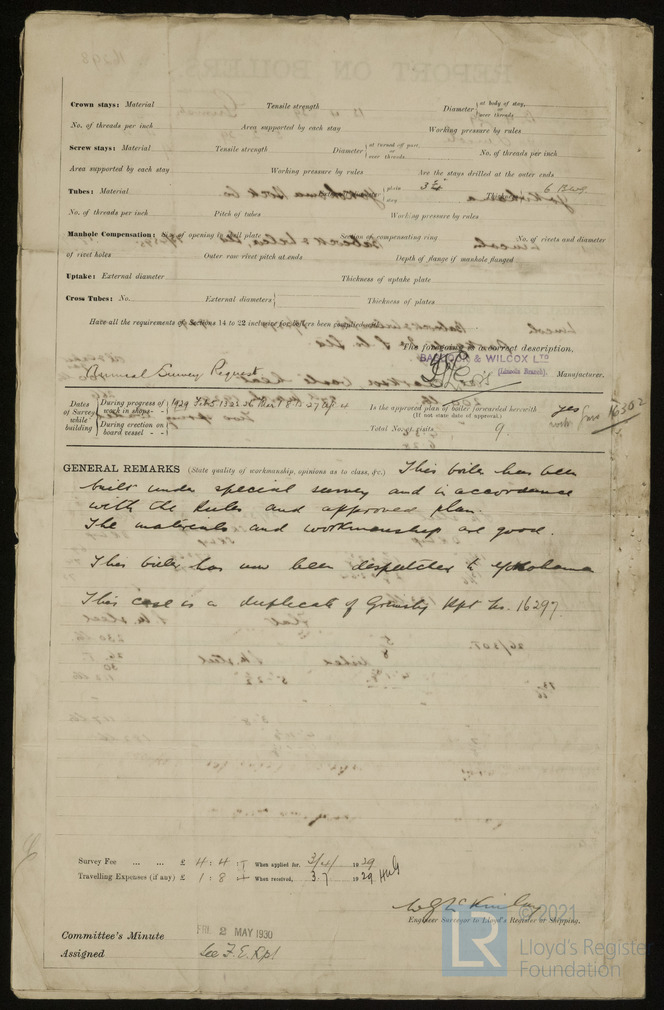 Crown stays: Material Tensile strength Diameter { at body of stay, or over threads
No. of threads per inch Area supported by each stay Working pressure by rules
Screw stays: Material Tensile strength Diameter { at turned off part, or over threads No. of threads per inch
Area supported by each stay Working pressure by rules Are the stays drilled at the outer ends
Tubes: Material 3 1/4 6
No. of threads per inch Pitch of tubes Working pressure by rules
Manhole Compensation: Size of opening in shell plate Section of compensating ring No. of rivets and diameter
of rivet holes Outer row rivet pitch at ends Depth of flange if manhole flanged
Uptake: External diameter Thickness of uptake plate
Cross Tubes: No. External diameters { Thickness of plates
Have all the requirements of Sections 14 to 22 inclusive for boilers been complied with
The foregoing is a correct description,
BABCOCK & WILCOX LTD
(Lincoln Branch) Manufacturer.
Annual Survey Request
Dates of Survey while building { During progress of work in shops - - 1929
During erection on board vessel - - -
Is the approved plan of boiler forwarded herewith yes
(If not state date of approval.)
Total No. of visits 9.
GENERAL REMARKS (State quality of workmanship, opinions as to class, &c.) This boiler has been
built under special survey and in accordance
with the Rules and approved plan.
The materials and workmanship are good.
This boiler has now been despatched to Yokohama
This case is a duplicate of Grimsby Rpt No. 16297.
Survey Fee ... ... £ 4 : 4 : When applied for, 3/4/ 1929
Travelling Expenses (if any) £ 1 : 8 : When received, 3.7 1929
Engineer Surveyor to Lloyd's Register of Shipping.
Committee's Minute FRI. 2 MAY 1930
Assigned See F.E. Rpt
© 2021
LR Lloyd's Register
Foundation